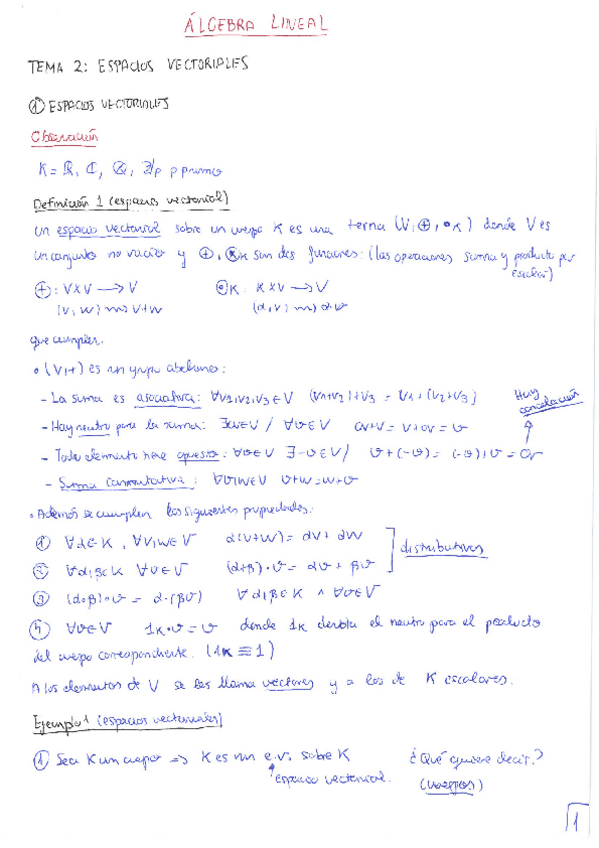 ÁLGEBRA LINEAL
TEMA 2: ESPACIOS VECTORIALES
① ESPACIOS VECTORIALES
Observación
K = ℝ, ℂ, ℚ, ℤ/p p primo
Definición 1 (espacio vectorial)
Un espacio vectorial sobre un cuerpo K es una terna (V, ⊕, •K) donde V es
un conjunto no vacío y ⊕, ⊙K son dos funciones: (las operaciones suma y producto por
escalar)
⊕: V×V → V ⊙K: K×V → V
(v, w) ⇝ v+w (α, v) ⇝ α·v
que cumplen:
• (V,+) es un grupo abeliano:
- La suma es asociativa: ∀v1,v2,v3 ∈ V (v1+v2)+v3 = v1+(v2+v3) Hay
cancelación
- Hay neutro para la suma: / ∀v∈V
- Todo elemento tiene opuesto: ∀v∈V ∃-v∈V / v+(-v) = (-v)+v =
- Suma conmutativa: ∀v,w∈V v+w=w+v
• Además se cumplen las siguientes propiedades:
① ∀α∈K, ∀v,w∈V α(v+w) = αv + αw
② ∀α,β∈K ∀v∈V (α+β)·v = αv + βv distributivas
③ (α·β)·v = α·(βv) ∀α,β∈K ∧ ∀v∈V
④ ∀v∈V 1K·v = v donde 1K denota el neutro para el producto
del cuerpo correspondiente. (1K ≡ 1)
A los elementos de V se les llama vectores y a los de K escalares.
Ejemplo 1 (espacios vectoriales)
① Sea K un cuerpo ⇒ K es un e.v. sobre K ¿Qué quiere decir?
espacio vectorial.
1